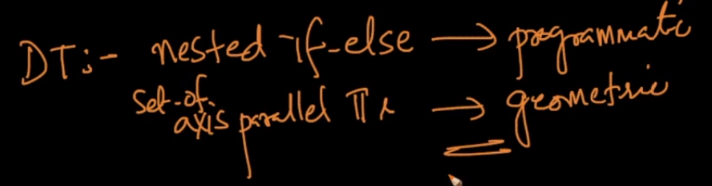 DT:- nested if-else → programmatic
set-of axis parallel πs → geometric